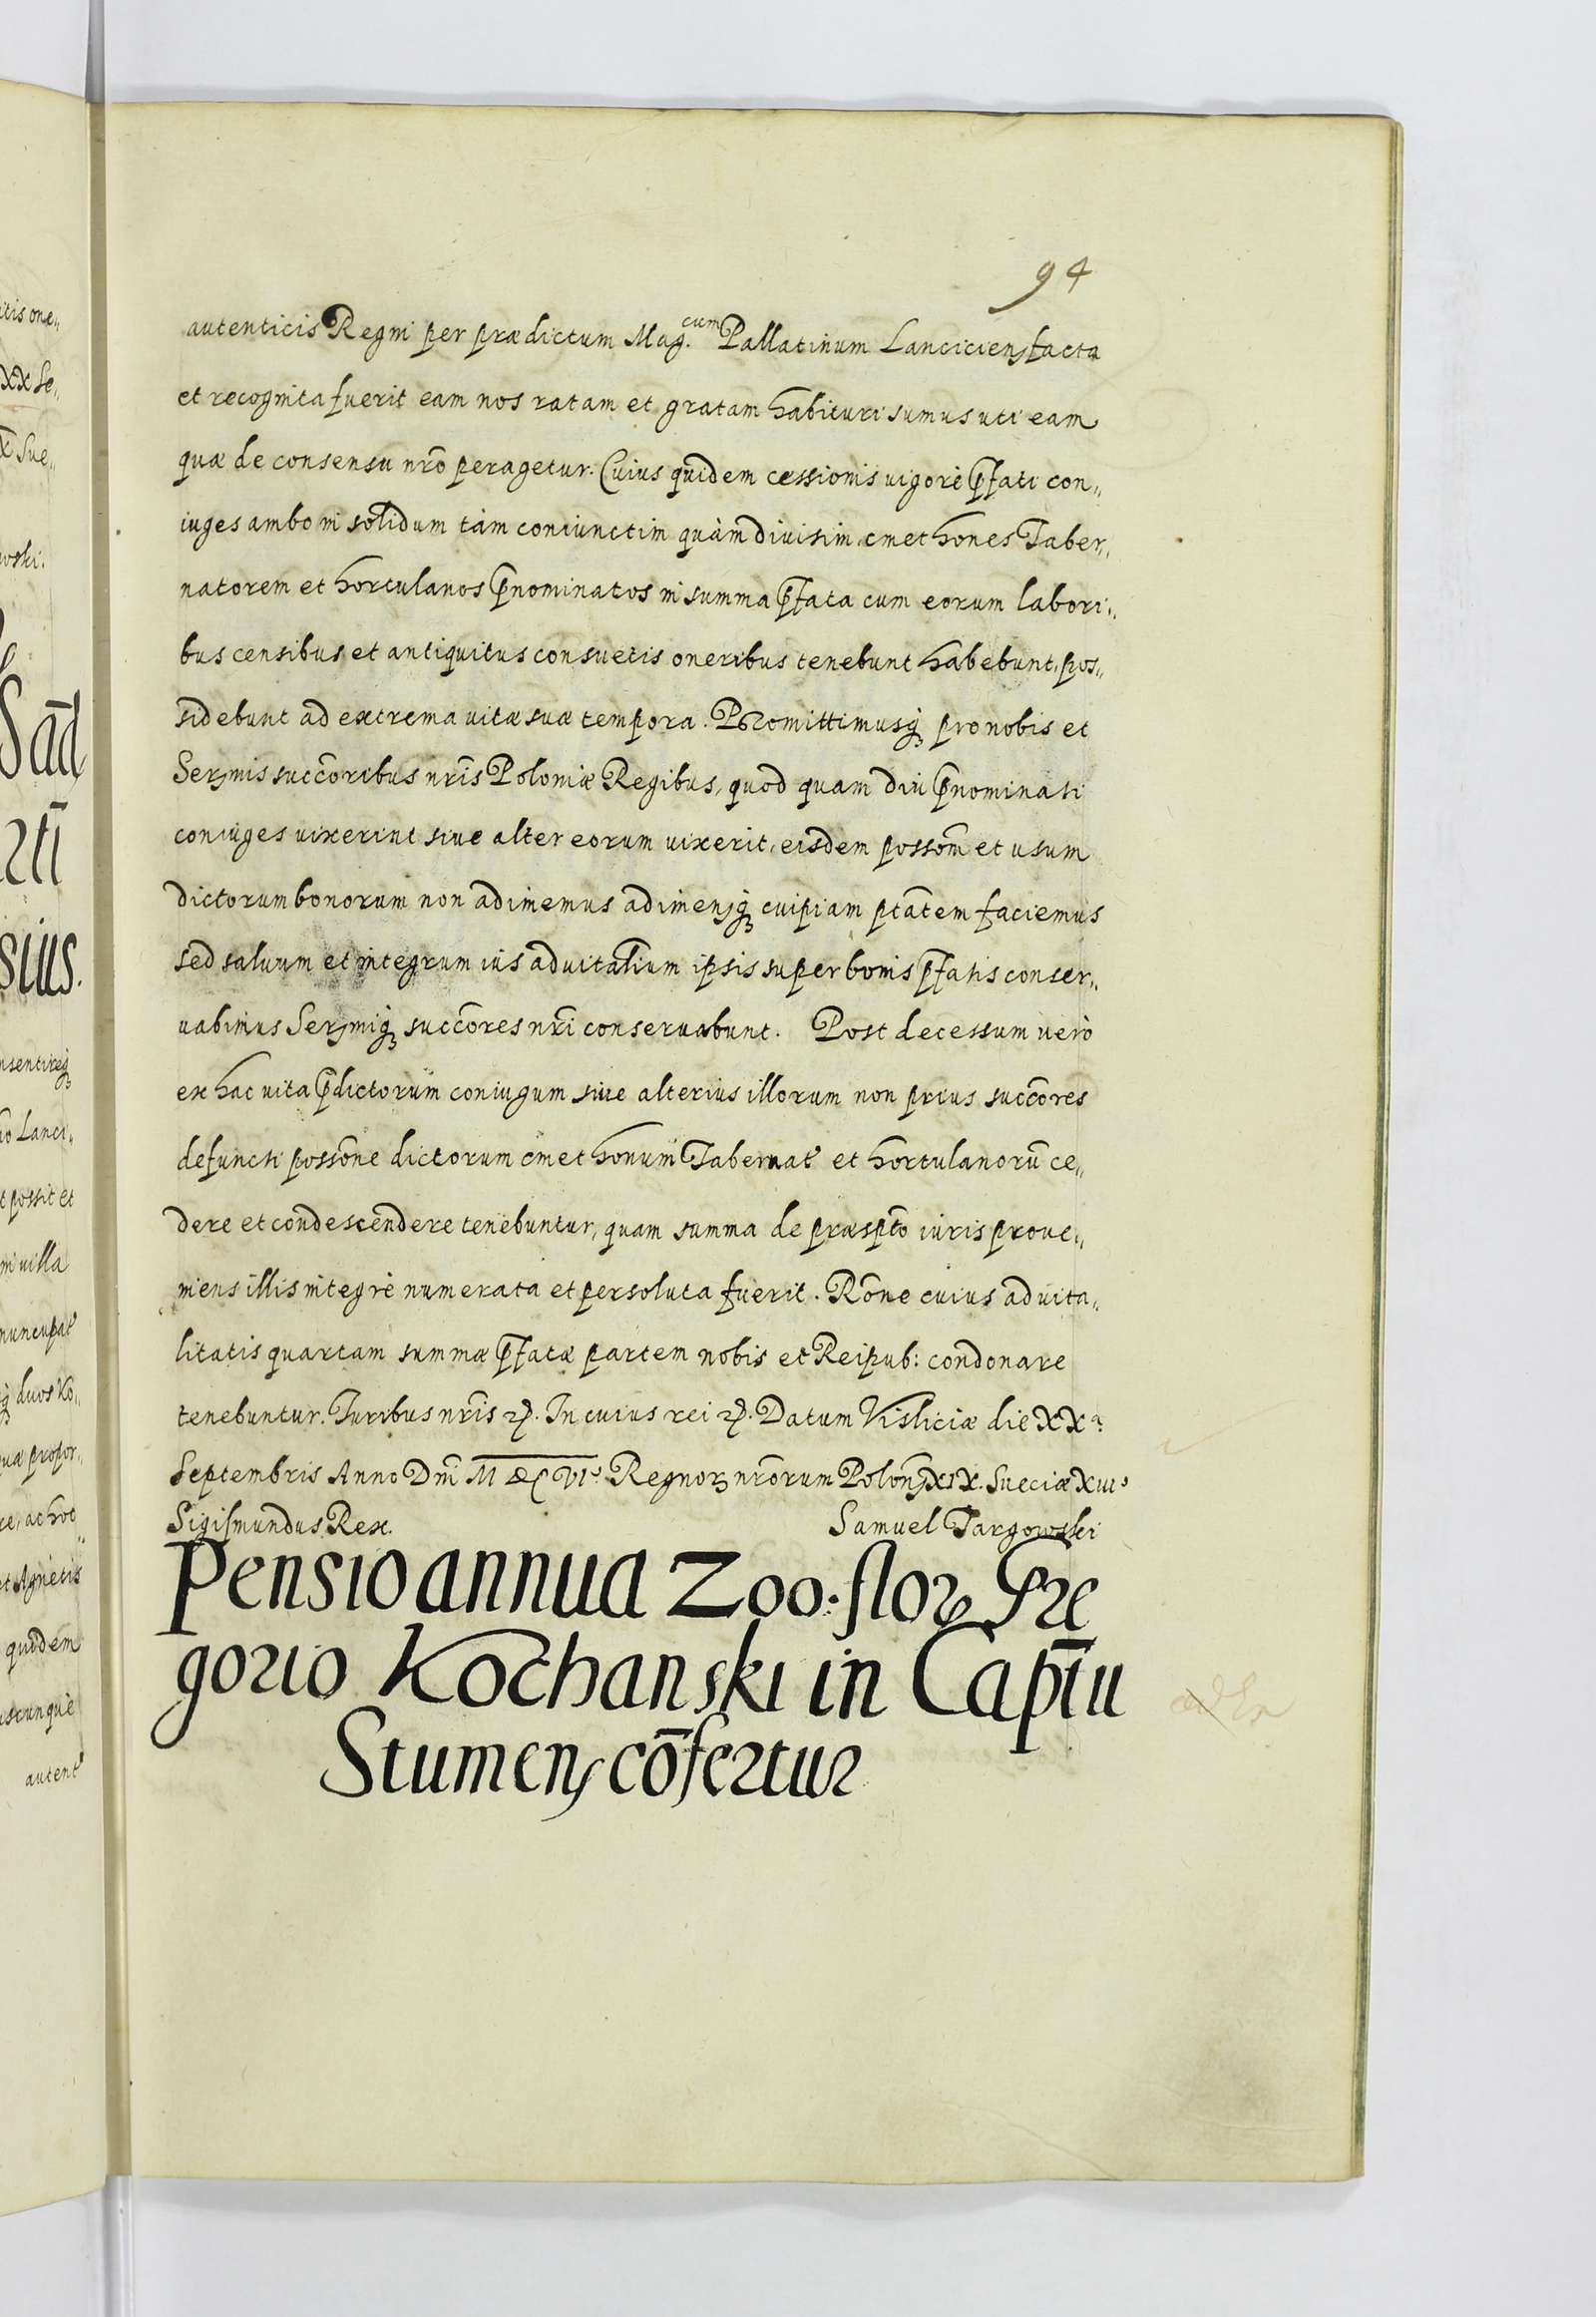 94
autenticis Regni per prædictum Mag.cum Pallatinum Lanciciens facta
et recognita fuerit eam nos ratam et gratam habituri sumus uti eam
quæ de consensu nr̃o peragetur. Cuius quidem cessionis uigore p̃fati con„
iuges ambo in solidum tàm coniunctim quàm diuisim cmethones Taber„
natorem et hortulanos p̃nominatos in summa p̃fata cum eorum labori„
bus censibus et antiquitus consuetis oneribus tenebunt habebunt, pos„
sidebunt ad extrema uitæ suæ tempora. Promittimusq₃ pro nobis et
Serenis succ̃oribus nr̃is Poloniæ Regibus, quod quam diu p̃nominati
coniuges uixerint siue alter eorum uixerit, eisdem possom̃ et usum
dictorum bonorum non adimemus adimendiq₃ cuipiam ptãtem faciemus
sed saluum et integrum ius aduitalium ipsis super bonis p̃fatis conser„
uabimus Serenniq₃ succ̃ores nr̃i conseruabunt. Post decessum uerò
ex hac uita p̃dictorum coniugum siue alterius illorum non prius succ̃ores
defuncti possõne dictorum cmethonum Tabernat et hortulanorũ ce„
dere et condescendere tenebuntur, quam summa de præsp̃to iuris proue„
niens illis integrè numerata et persoluta fuerit. Rõne cuius aduita„
litatis quartam summæ p̃fatæ partem nobis et Reipub: condonare
tenebuntur. Iuribus nr̃is ꝛc. In cuius rei ꝛc. Datum Visliciæ die XXa
Septembris Anno Dnĩ M DC VIo Regnoꝝ nr̃orum Polon XIX. Sueciæ XIIIo
Sigismundus Rex. Samuel Targowski
Pensio annua 200. floꝝ Gre
gorio Kochanski in Cap̃tu
Stumens cõfertur